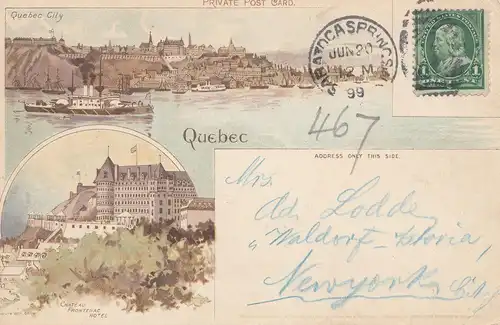 PRIVATE POST CARD.
Quebec City
SARATOGA SPRINGS
JUN 20
12 M
99
1
467
Quebec
ADDRESS ONLY THIS SIDE.
Mrs
Ad. Lodde
"Waldorf-Astoria,
Newyork City
CHATEAU
FRONTENAC
HOTEL